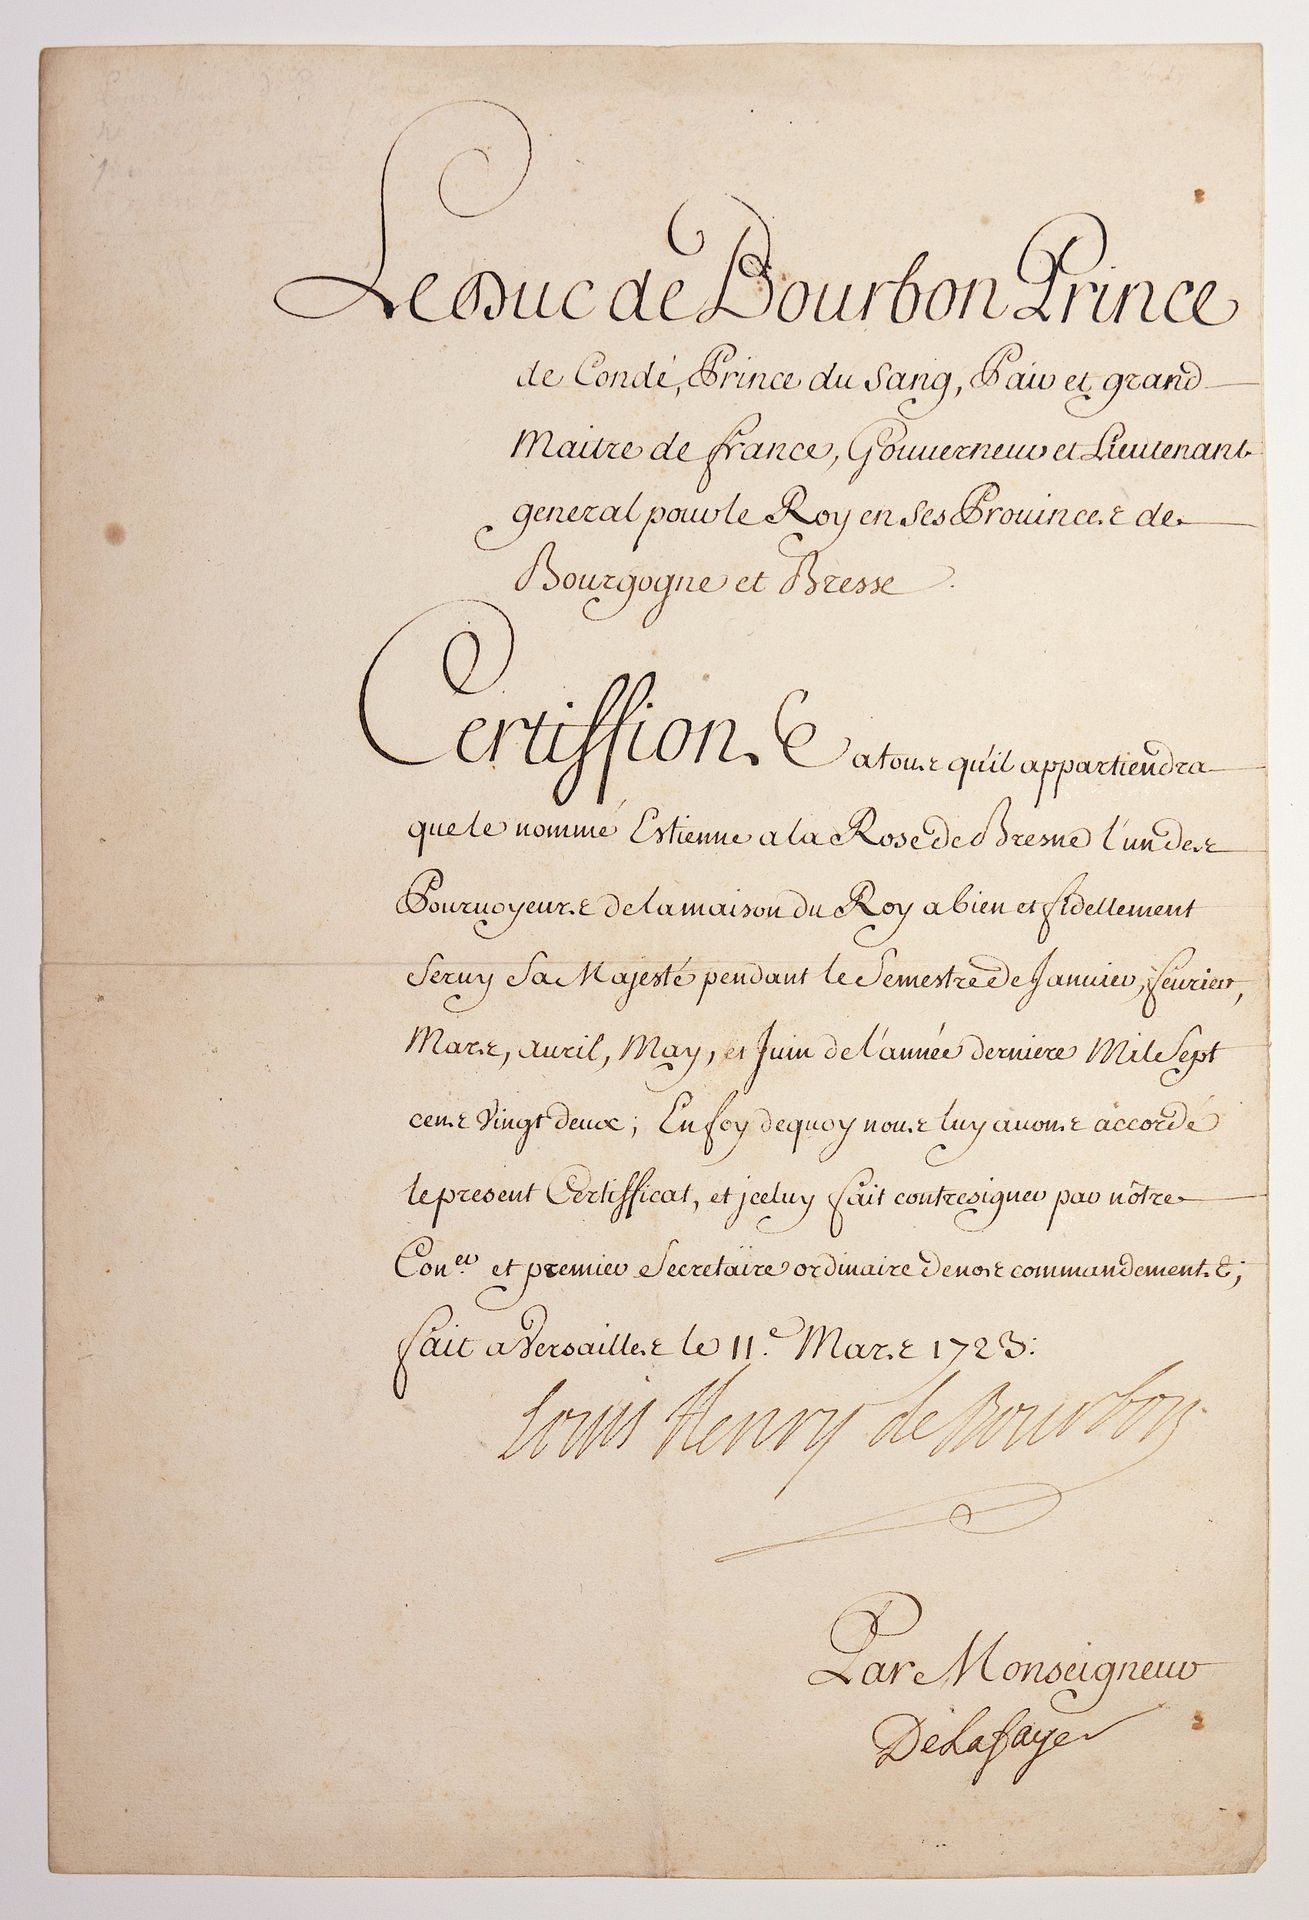 Le Duc de Bourbon Prince
de Condé, Prince du Sang, Pair et grand
Maitre de france, Gouverneur et Lieutenant
general pour le Roy en ses Prouinces de
Bourgogne et Bresse.
Certiffions a tous qu'il appartiendra
que le nommé Estienne a la Rose de Bresne l'un des
Pouruoyeurs de la maison du Roy a bien et fidellement
seruy Sa Majesté pendant le Semestre de Januier, feurier,
Mars, auril, May, et Juin de l'année derniere Mil Sept
cens Vingt deux; En foy de quoy nous luy auons accordé
le present Certifficat, et jceluy fait contresigner par nôtre
Con.er et premier Secretaire ordinaire de nos commandements;
fait a Versailles le 11.e Mars 1723.
Louis Henry de Bourbon
Par Monseigneur
DeLafaye